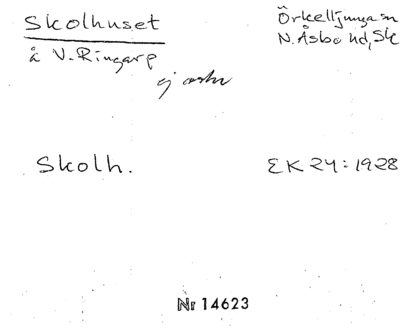 Skolhuset
Örkelljunga sn
å V. Ringarp
N. Åsbo hd, Sk
ej
Skolh.
EK 24:1928
Nr 14623